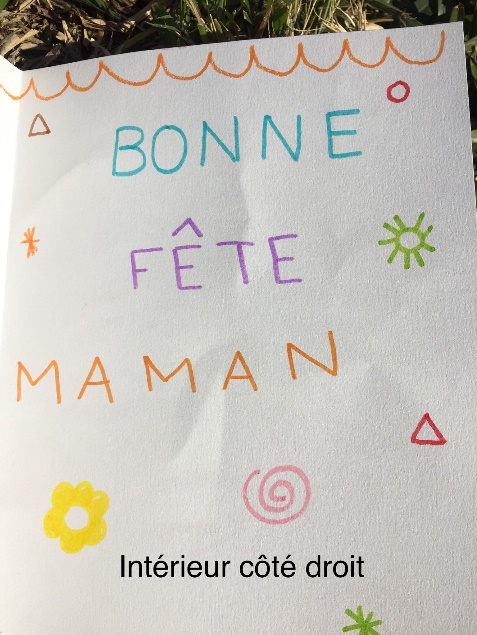 BONNE
FÊTE
MAMAN
Intérieur côté droit